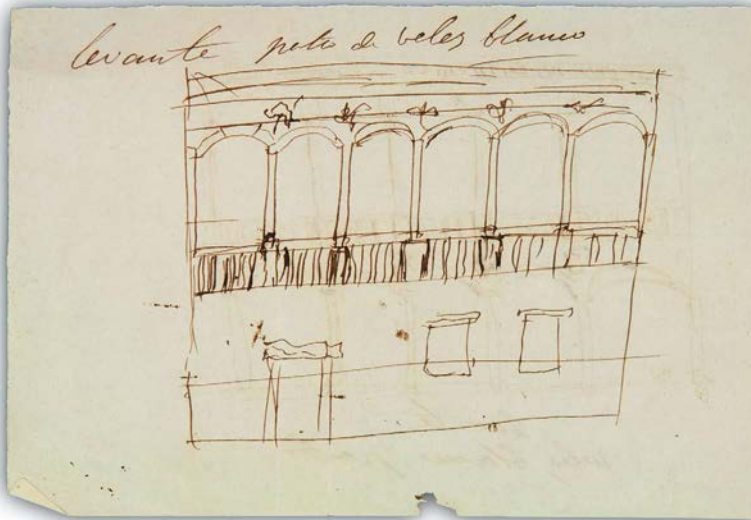 levante patio de velez blanco